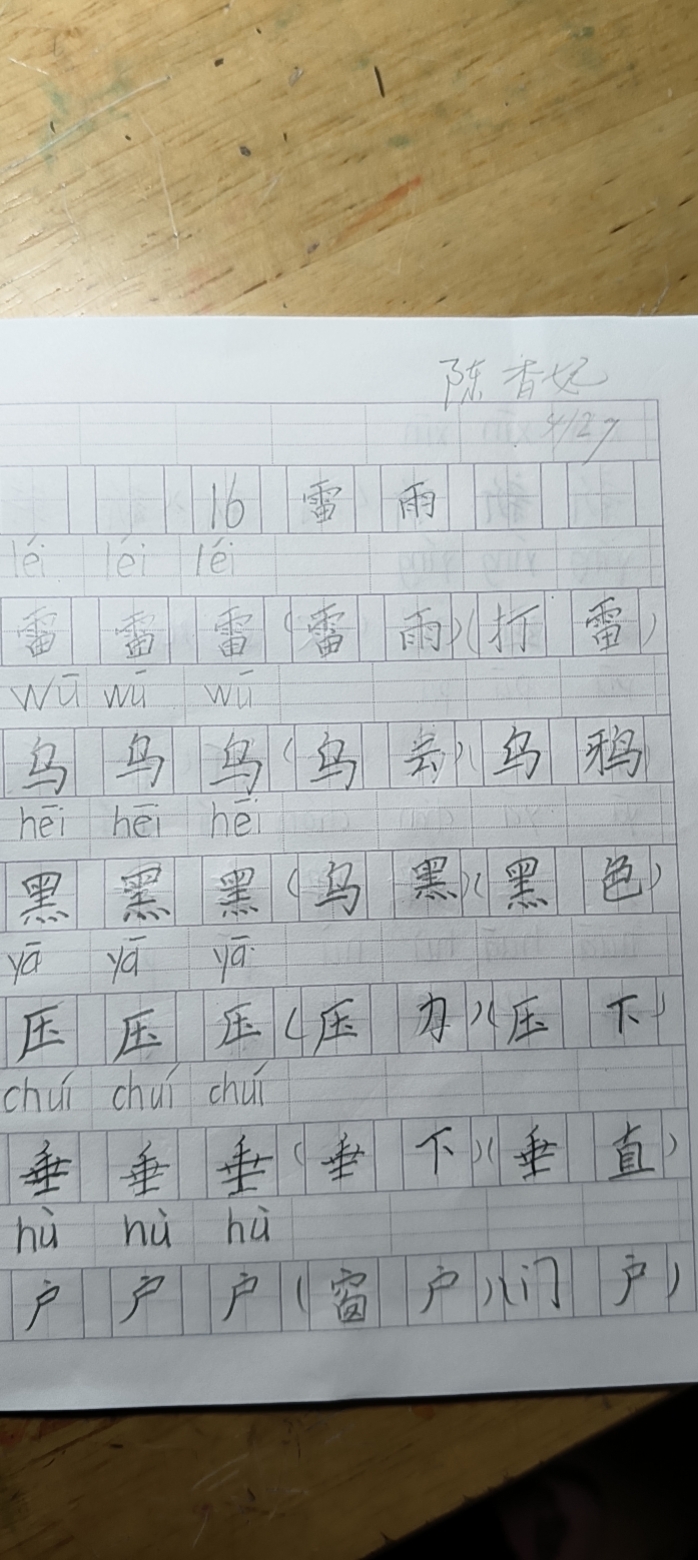 陈香妃
4/27
16 雷雨
léi léi léi
雷 雷 雷（雷雨）（打雷）
wū wū wū
乌 乌 乌（乌云）（乌鸦）
hēi hēi hēi
黑 黑 黑（乌黑）（黑色）
yā yā yā
压 压 压（压力）（压下）
chuí chuí chuí
垂 垂 垂（垂下）（垂直）
hù hù hù
户 户 户（窗户）（门户）